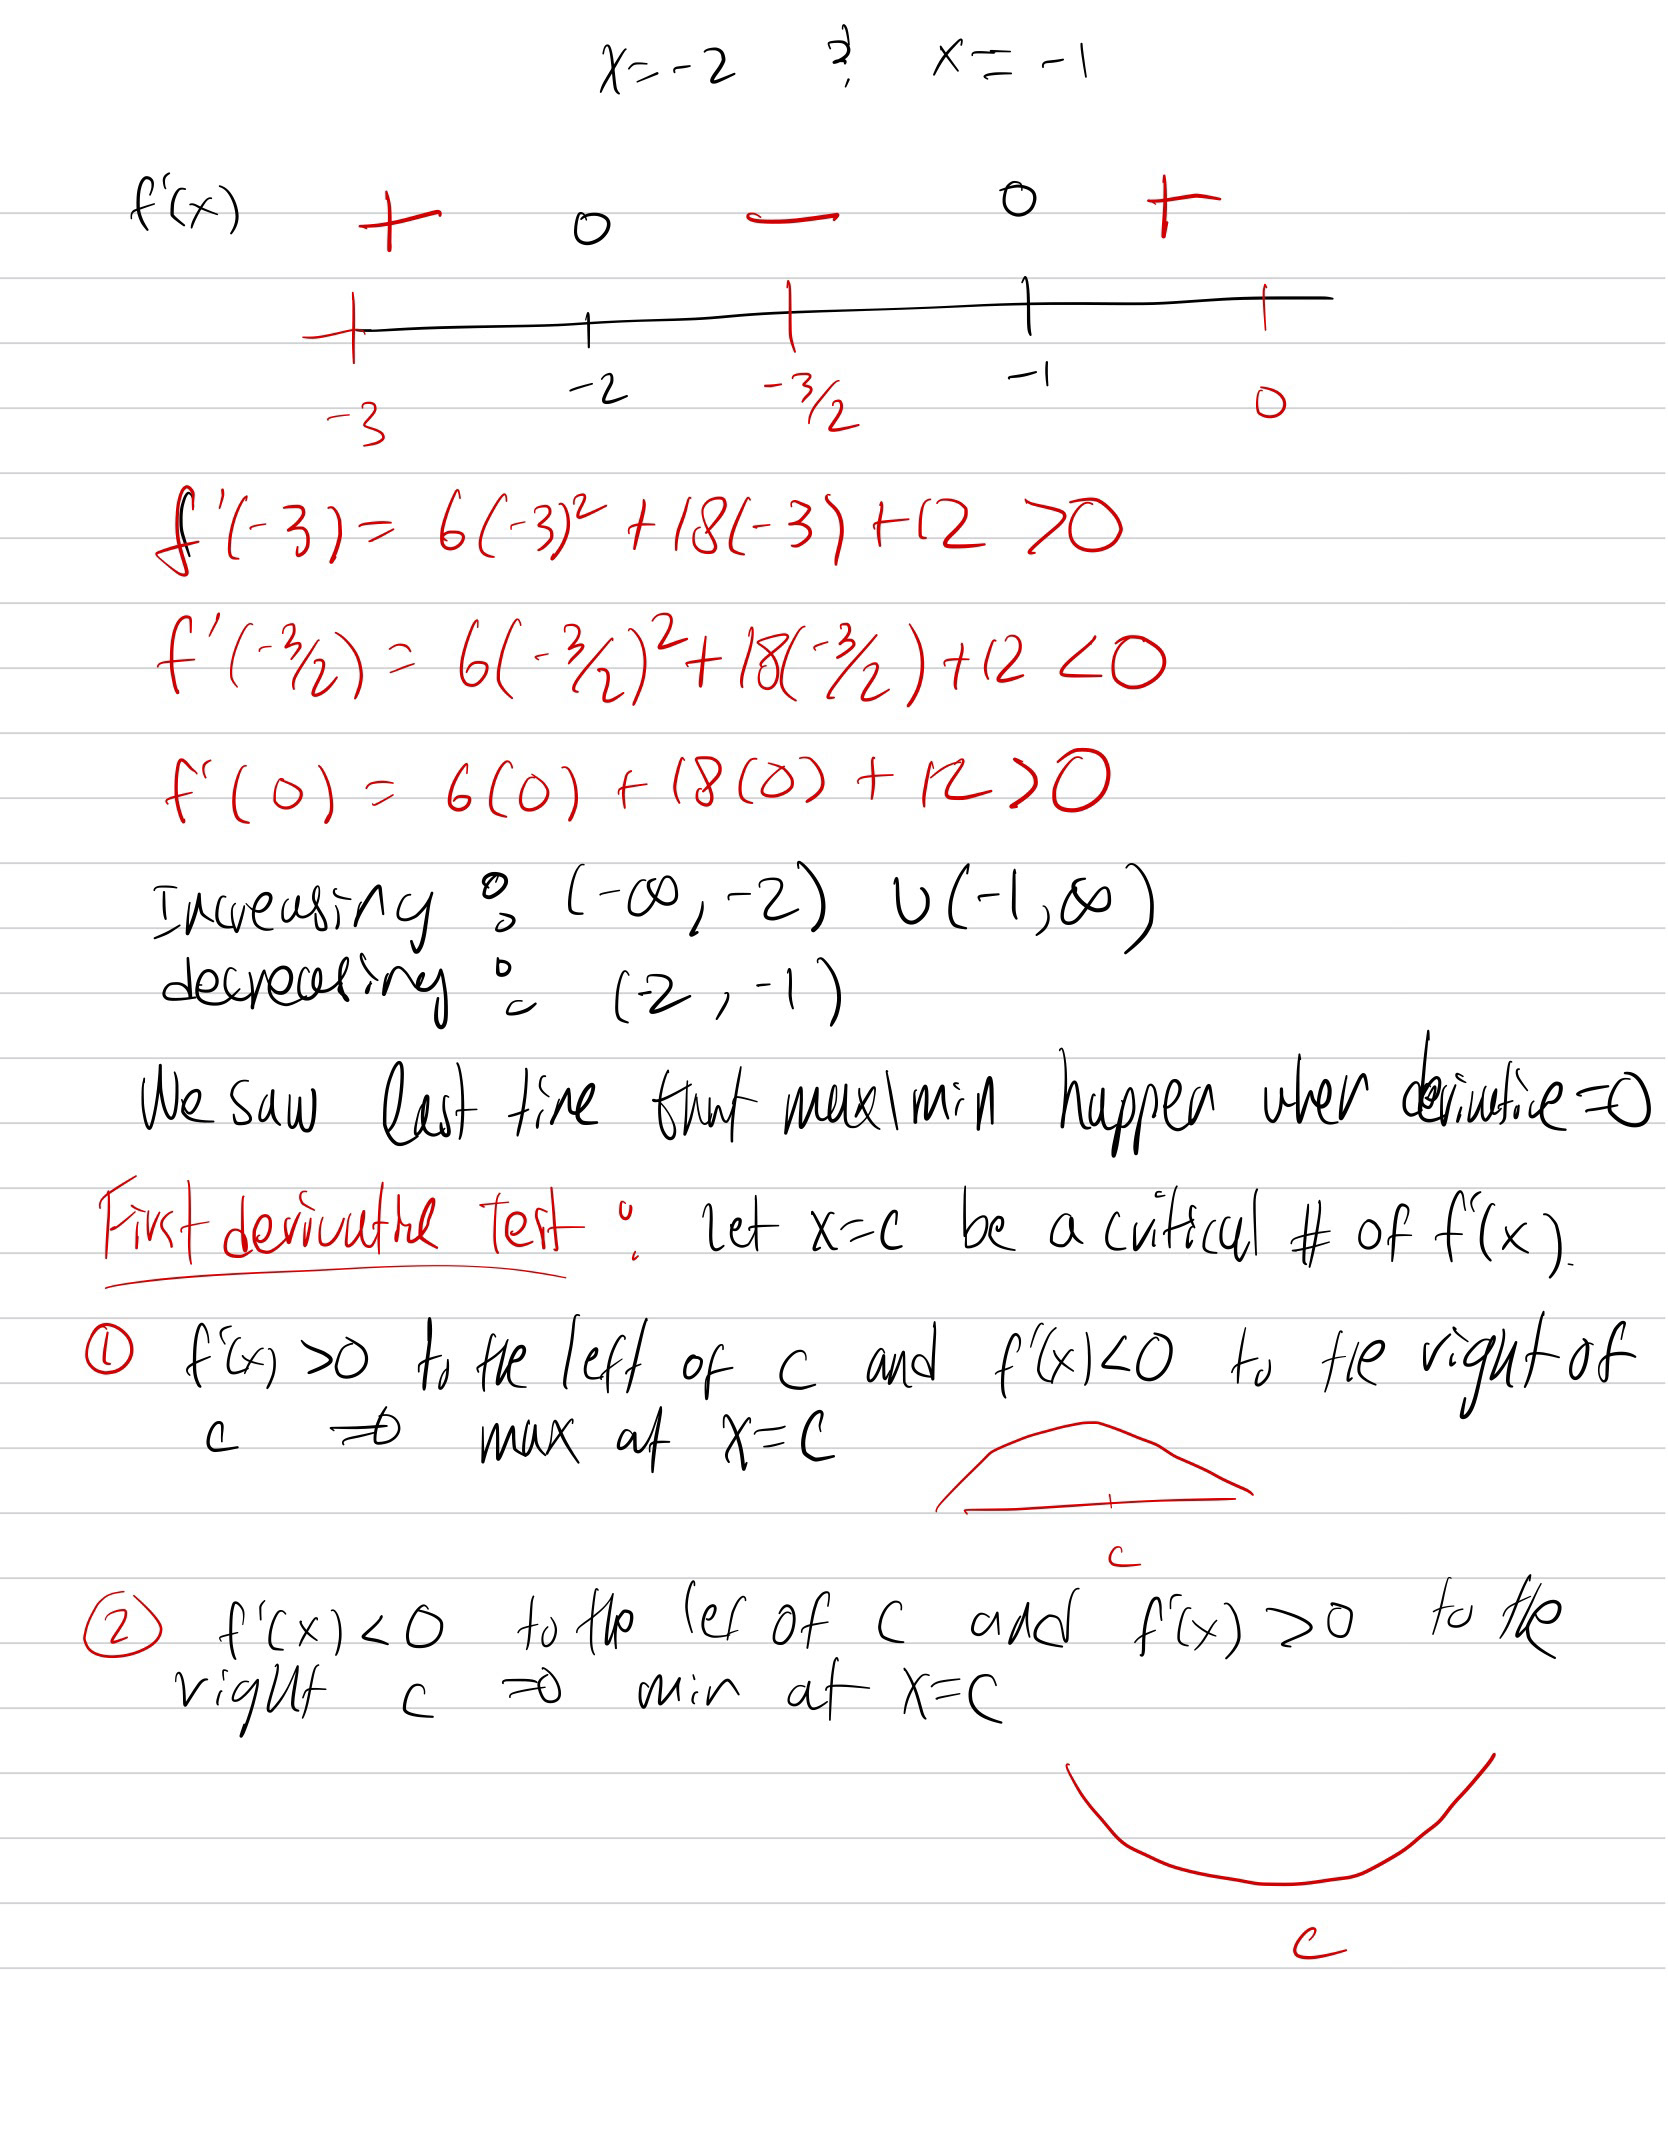 x=-2 & x=-1
f'(x) + 0 — 0 +
-3 -2 -3/2 -1 0
f'(-3) = 6(-3)² + 18(-3) + 12 >0
f'(-3/2) = 6(-3/2)² + 18(-3/2) + 12 <0
f'(0) = 6(0) + 18(0) + 12 >0
Increasing : (-∞, -2) ∪ (-1, ∞)
decreasing : (-2, -1)
We saw last time that max/min happen when derivative =0
First derivative Test : Let x=c be a critical # of f'(x).
① f'(x) >0 to the left of c and f'(x) <0 to the right of
c ⇒ max at x=c
c
② f'(x) <0 to the lef of c and f'(x) >0 to the
right c ⇒ min at x=c
c